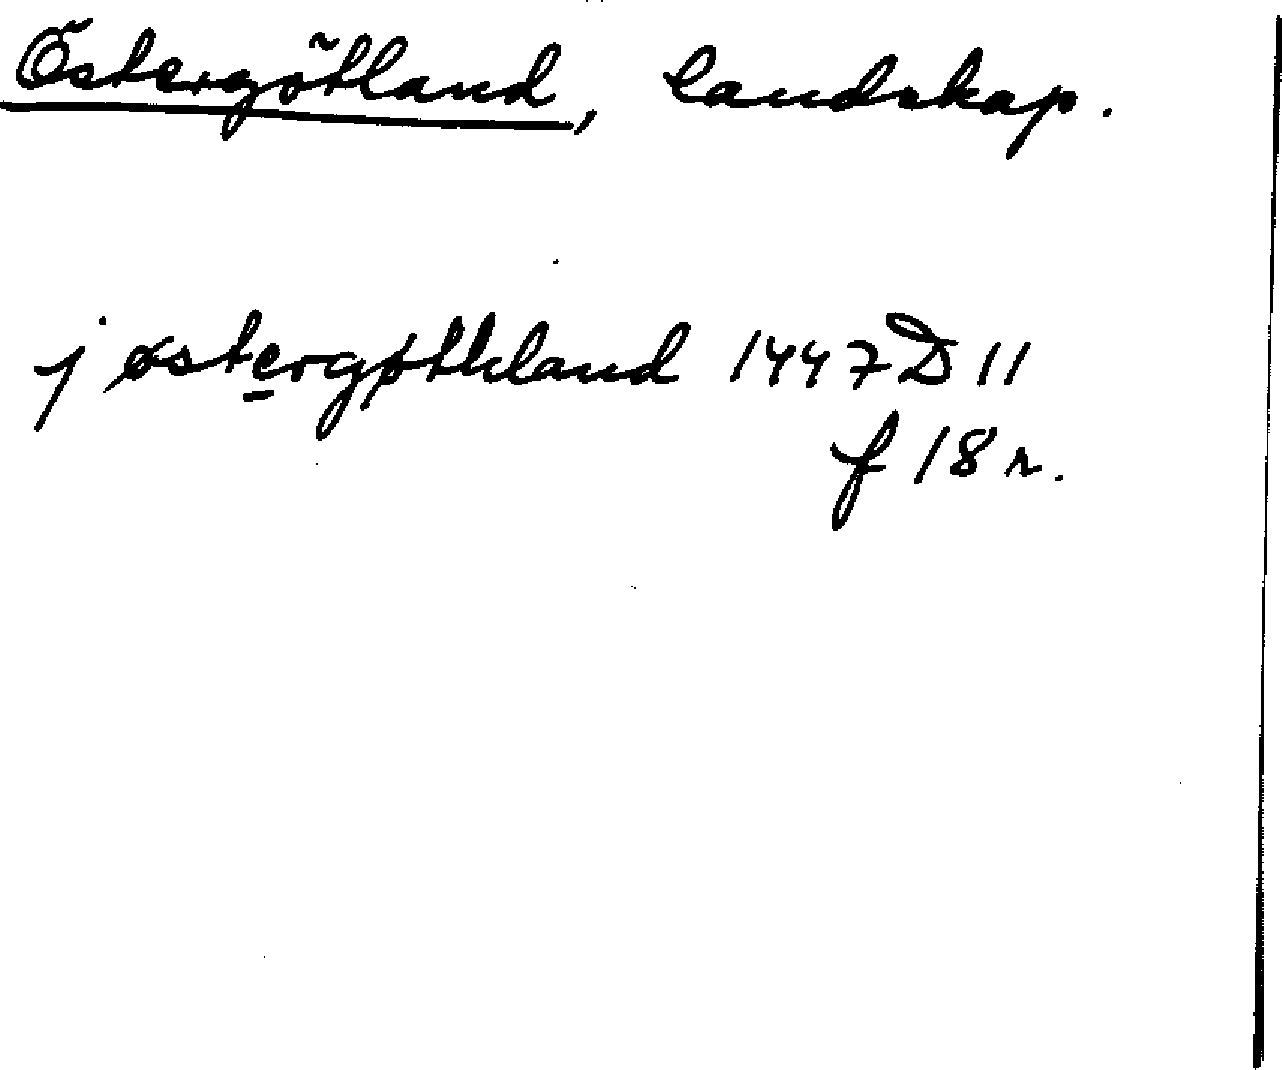 Östergötland, landskap.
j østergøthland 1447 D 11
f 18 r.